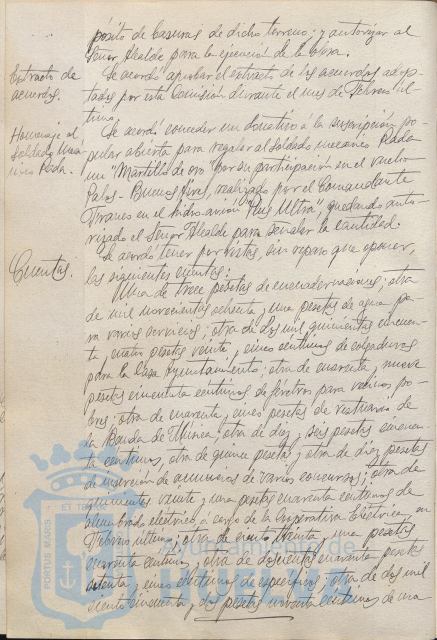 pósito de basuras de dicho terreno; y autorizar al
Señor Alcalde para la ejecución de la obra.
Extracto de acuerdos.
Se acordó aprobar el extracto de los acuerdos adop-
tados por esta Comisión durante el mes de Febrero úl-
timo.
Homenaje al soldado mecánico Rada.
Se acordó conceder un donativo a la suscripción po-
pular abierta para regalar al soldado mecánico Rada
un "Martillo de oro" por su participación en el vuelo
Palos-Buenos Aires, realizado por el Comandante
Franco en el hidro-avión "Plus Ultra", quedando auto-
rizado el Señor Alcalde para señalar la cantidad.
Cuentas.
Se acordó tener por vistas, sin reparo que oponer,
las siguientes cuentas:
Una de trece pesetas de encuadernaciones; otra
de mil novecientas ochenta y una pesetas de agua pa-
ra varios servicios; otra de dos mil quinientas cincuen-
ta y cuatro pesetas veinte y cinco céntimos de colgaduras
para la Casa Ayuntamiento; otra de cuarenta y nueve
pesetas cincuenta céntimos de féretros para vecinos po-
bres; otra de cuarenta y cinco pesetas de vestuario de
la Banda de Música; otra de diez y seis pesetas cincuen-
ta céntimos, otra de quince pesetas y otra de diez pesetas
de inserción de anuncios de varios concursos; otra de
quinientas veinte y una pesetas cuarenta céntimos de
alumbrado eléctrico a cargo de la Cooperativa Eléctrica, en
Febrero último; otra de ciento treinta y una pesetas
cuarenta céntimos, otra de doscientas cuarenta pesetas
setenta y cinco céntimos de específicos; otra de dos mil
ciento cincuenta y dos pesetas noventa céntimos de una
ET TERRAE
PORTUS MARIS
Ayuntamiento de
HUELVA